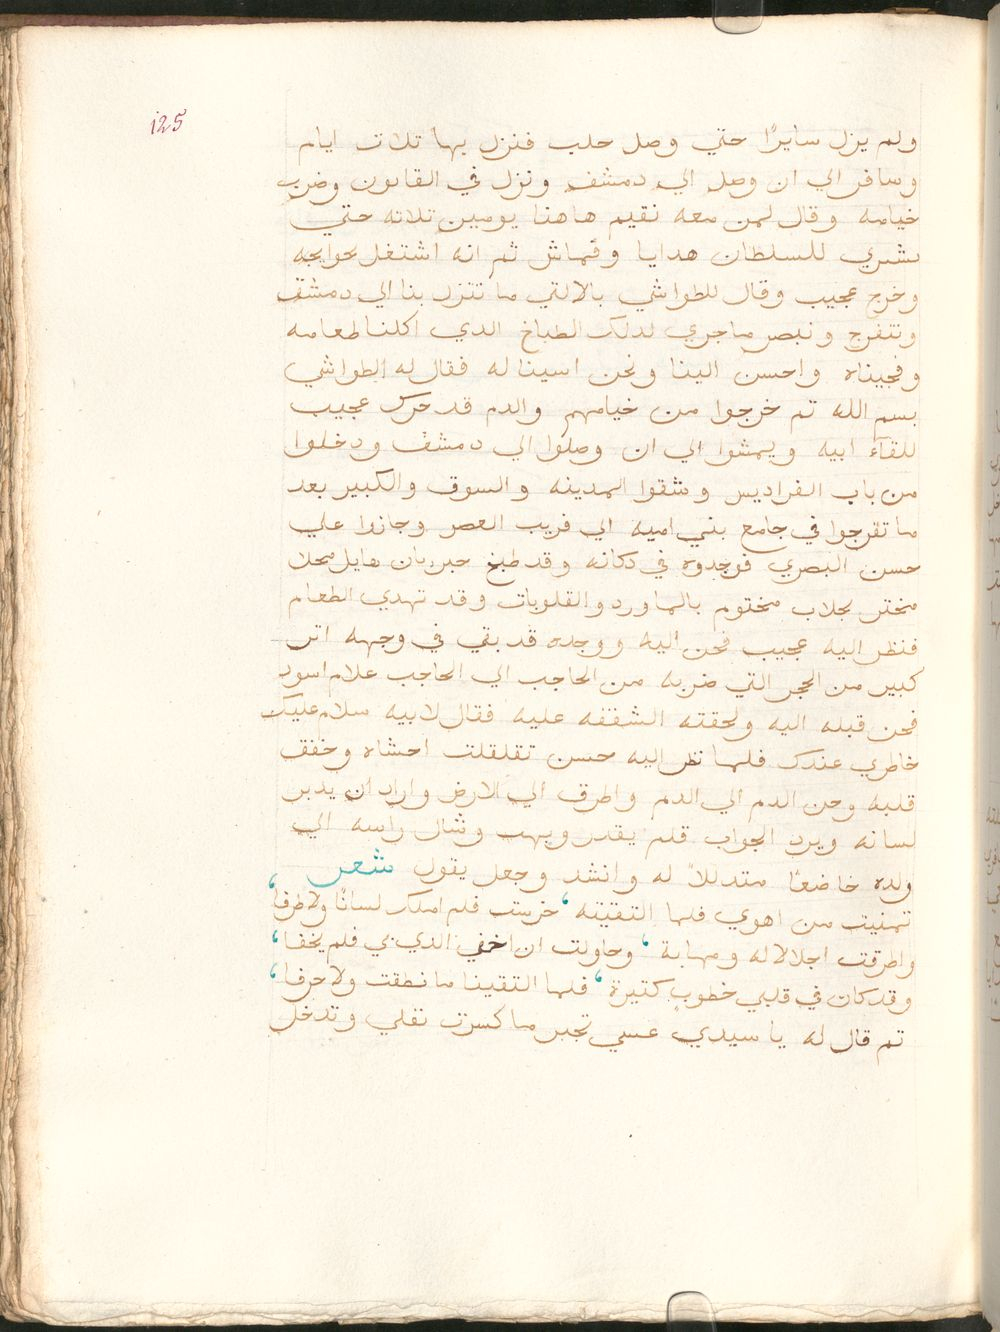 125
ولم يزل سايرًا حتي وصل حلب فنزل بها تلات ايام
وسافر الي ان وصل الي دمشق ونزل في القانون وضرب
خيامه وقال لمن معه نقيم هاهنا يومين تلاته حتي
نشتري للسلطان هدايا وقماش ثم انه اشتغل بحوايجه
وخرج عجيب وقال للطواشي يالالتي ما تنزل بنا الي دمشق
ونتفرج ونبصر ما جري لدلك الطباخ الدي اكلنا طعامه
وفجيناه واحسن الينا ونحن اسينا له فقال له الطواشي
بسم الله تم خرجوا من خيامهم والدم قد حرك عجيب
للقاء ابيه ويمشوا الي ان وصلوا الي دمشق ودخلوا
من باب الفراديس وشقوا المدينه والسوق والكبير بعد
ما تفرجوا في جامع بني اميه الي قريب العصر وجازوا علي
حسن البصري فوجدوه في دكانه وقد طبخ حبرمان هايل محلا
مختر بجلاب مختوم بالماورد والقلوبات وقد تهدي الطعام
فنظر اليه عجيب فحن اليه ووجده قد بقي في وجهه اتر
كبير من الحجر التي ضربه من الحاجب الي الحاجب علام اسود
فحن قبله اليه ولحقته الشفقه عليه فقال لابيه سلام عليك
خاطري عندك فلما نظر اليه حسن تقلقلت احشاه وخفق
قلبه وحن الدم الي الدم واطرق الي الارض واراد ان يدير
لسانه ويرد الجواب فلم يقدر وبهت وشال راسه الي
ولده خاضعًا متدللاً له وانشد وجعل يقول شعر
تمنيت من اهوي فلما التقيته ‘ خرست فلم املك لسانًا ولا طرفا ‘
واطرقت اجلالا له ومهابة ‘ وحاولت ان اخفي الذي بي فلم يخفا ‘
وقد كان في قلبي خطوب كتيرة ‘ فلما التقينا ما نطقت ولا حرفا ‘
تم قال له يا سيدي عسي تجبر ما كسرت نقلي وتدخل